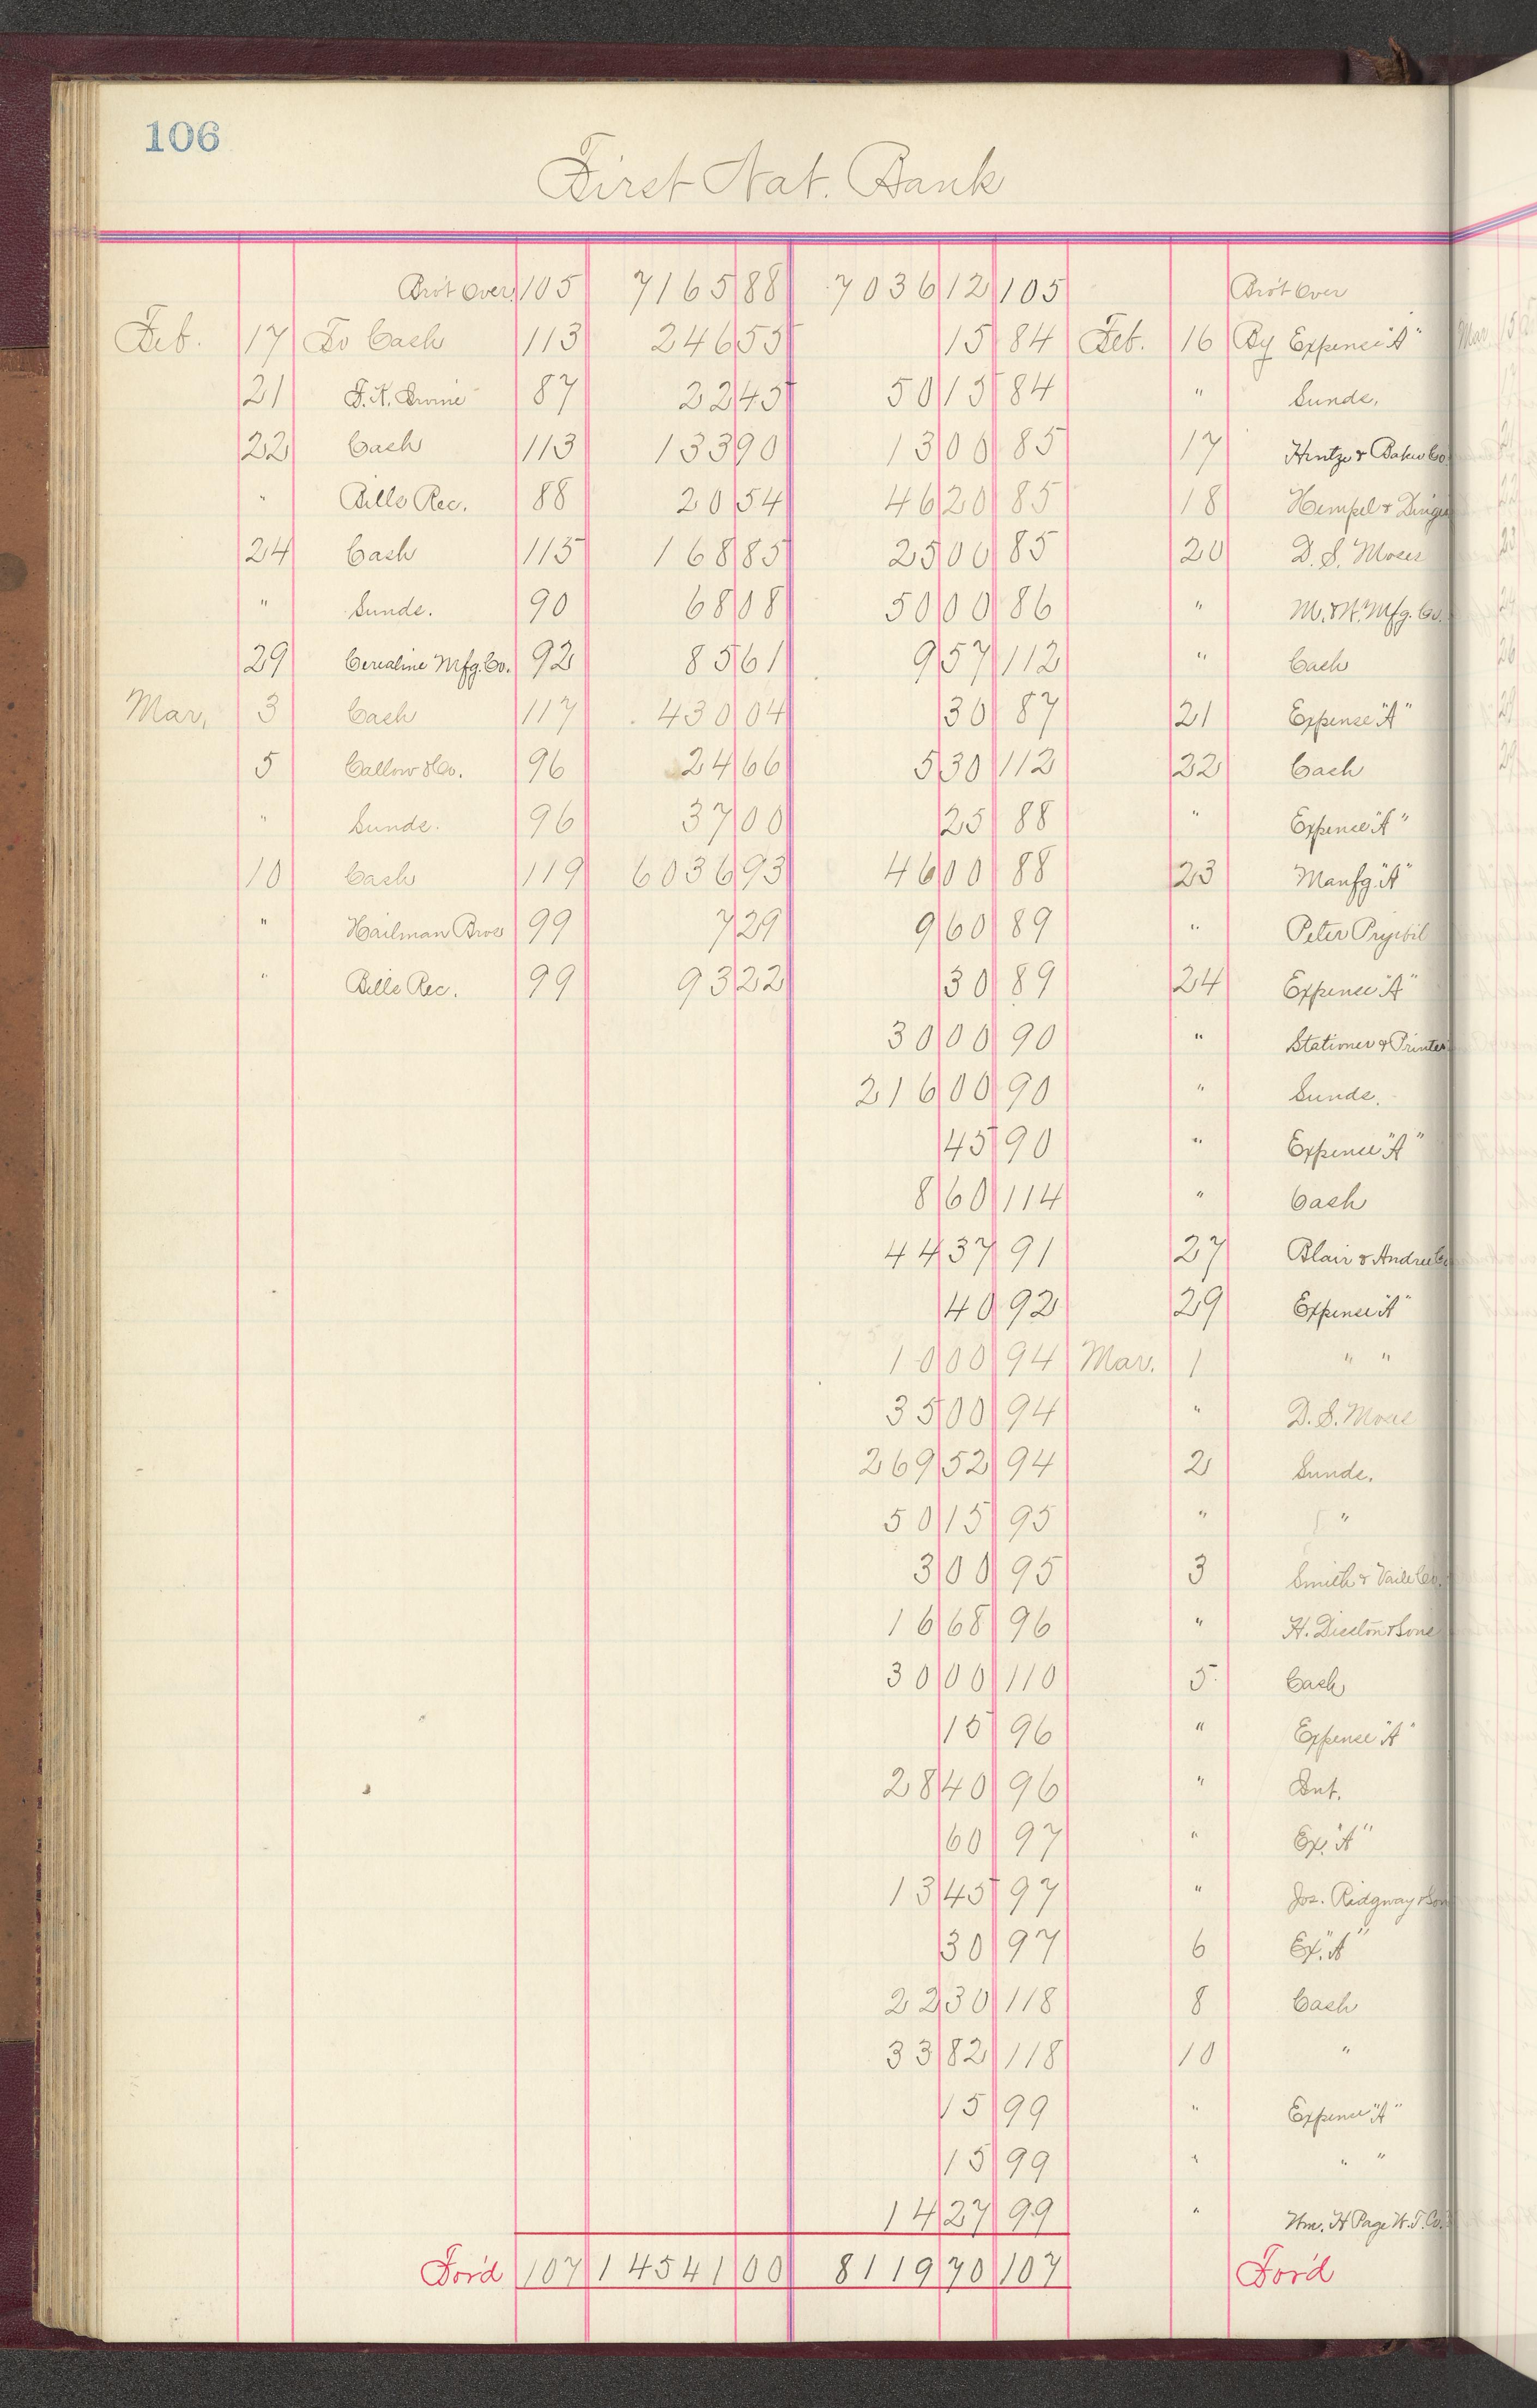 106
First Nat. Bank
Bro't Over 105 7165 88 7036 12 105 Bro't Over
Feb. 17 To Cash 113 246 55 15 84 Feb. 16 By Expense "A"
21 87 22 45 50 15 84 " Sunds.
22 Cash 113 133 90 13 00 85 17 Hintze & Baker Co.
" Bills Rec. 88 20 54 46 20 85 18 Hempel &
24 Cash 115 168 85 25 00 85 20 D. S. Moses
" Sunds. 90 68 08 50 00 86 " M. & N. Mfg. Co.
29 Cerealine Mfg. Co. 92 85 61 9 57 112 " Cash
Mar. 3 Cash 117 430 04 30 87 21 Expense "A"
5 Callow & Co. 96 24 66 5 30 112 22 Cash
" Sunds. 96 37 00 25 88 " Expense "A"
10 Cash 119 6036 93 46 00 88 23 Manfg. "A"
" Hailman Bros 99 7 29 9 60 89 " Peter Pryibil
" Bills Rec. 99 93 22 30 89 24 Expense "A"
30 00 90 " Stationer & Printer
216 00 90 " Sunds.
45 90 " Expense "A"
8 60 114 " Cash
44 37 91 27 Blair &
40 92 29 Expense "A"
10 00 94 Mar. 1 " "
35 00 94 " D. S. Moses
269 52 94 2 Sunds.
50 15 95 " "
3 00 95 3 Smith & Vaile Co.
16 68 96 " H. Disston & Sons
30 00 110 5 Cash
15 96 " Expense "A"
28 40 96 " Int.
60 97 " Ex. "A"
13 45 97 " Jos. Ridgway & Son
30 97 6 Ex. "A"
22 30 118 8 Cash
33 82 118 10 "
15 99 " Expense "A"
15 99 " " "
14 27 99 " Wm. H Page W. T. Co.
For'd 107 14541 00 8119 70 107 For'd